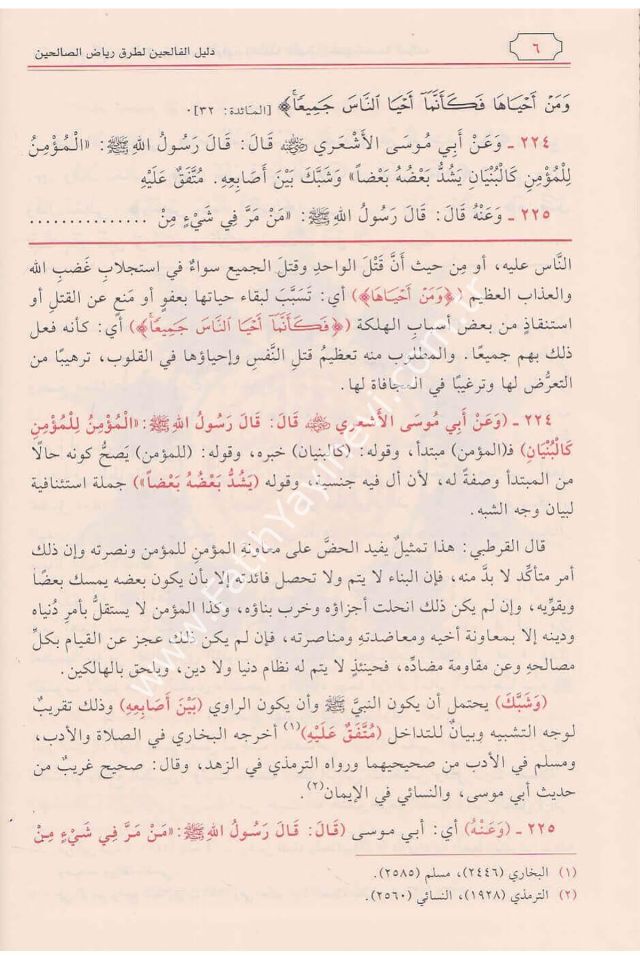 ٦
دليل الفالحين لطرق رياض الصالحين
وَمَنْ أَحْيَاهَا فَكَأَنَّمَا أَحْيَا النَّاسَ جَمِيعًا﴾ [المائدة: ٣٢].
٢٢٤ ـ وَعَنْ أَبِي مُوسَى الأَشْعَرِي رضي الله عنه قَالَ: قَالَ رَسُولُ اللهِ ﷺ: «الْمُؤْمِنُ
لِلْمُؤْمِنِ كَالْبُنْيَانِ يَشُدُّ بَعْضُهُ بَعْضاً» وَشَبَّكَ بَيْنَ أَصَابِعِهِ. مُتَّفَقٌ عَلَيْهِ
٢٢٥ ـ وَعَنْهُ قَالَ: قَالَ رَسُولُ اللهِ ﷺ: «مَنْ مَرَّ فِي شَيْءٍ مِنْ ...............
النَّاس عليه، أو مِن حيث أنَّ قتْلَ الواحدِ وقتلَ الجميع سواءٌ في استجلابِ غضبِ الله
والعذاب العظيم (﴿وَمَنْ أَحْيَاهَا﴾) أي: تَسَبَّبَ لبقاء حياتها بعفوٍ أو مَنعٍ عن القتلِ أو
استنقاذٍ من بعض أسبابِ الهلكة (﴿فَكَأَنَّمَا أَحْيَا النَّاسَ جَمِيعًا﴾) أي: كأنه فعل
ذلك بهم جميعًا. والمطلوب منه تعظيمُ قتلِ النَّفسِ وإحياؤها في القلوب، ترهيبًا من
التعرُّض لها وترغيبًا في المجافاة لها.
٢٢٤ ـ (وَعَنْ أبي مُوسَى الأَشْعَري رضي الله عنه قَالَ: قَالَ رَسُولُ اللهِ ﷺ: «الْمُؤْمِنُ لِلْمُؤْمِنِ
كَالْبُنْيَانِ) فـ(المؤمن) مبتدأ، وقوله: (كالبنيان) خبره، وقوله: (للمؤمن) يَصحُّ كونه حالًا
من المبتدأ وصفةً له، لأن أل فيه جنسية، وقوله (يَشُدُّ بَعْضُهُ بَعْضاً») جملة استئنافية
لبيان وجه الشبه.
قال القرطبي: هذا تمثيلٌ يفيد الحضَّ على معاونةِ المؤمنِ للمؤمن ونصرته وإن ذلك
أمر متأكِّد لا بدَّ منه، فإن البناء لا يتم ولا تحصل فائدته إلا بأن يكون بعضه يمسك بعضًا
ويقوِّيه، وإن لم يكن ذلك انحلت أجزاؤه وخرب بناؤه، وكذا المؤمن لا يستقلُّ بأمرِ دُنياه
ودينه إلا بمعاونة أخيه ومعاضدتهِ ومناصرته، فإن لم يكن ذلك عجز عن القيام بكلِّ
مصالحهِ وعن مقاومة مضادِّه، فحينئذٍ لا يتم له نظام دنيا ولا دين، ويلحق بالهالكين.
(وَشَبَّكَ) يحتمل أن يكون النبيَّ ﷺ وأن يكون الراوي (بَيْنَ أَصَابِعِهِ) وذلك تقريبٌ
لوجه التشبيه وبيانٌ للتداخل (مُتَّفَقٌ عَلَيْهِ)(١) أخرجه البخاري في الصلاة والأدب،
ومسلم في الأدب من صحيحيهما ورواه الترمذي في الزهد، وقال: صحيح غريبٌ من
حديث أبي موسى، والنسائي في الإيمان(٢).
٢٢٥ ـ (وَعَنْهُ) أي: أبي موسى (قَالَ: قَالَ رَسُولُ اللهِ ﷺ: «مَنْ مَرَّ فِي شَيْءٍ مِنْ
(١) البخاري (٢٤٤٦)، مسلم (٢٥٨٥).
(٢) الترمذي (١٩٢٨)، النسائي (٢٥٦٠).
www.FatihYayinevi.com.tr